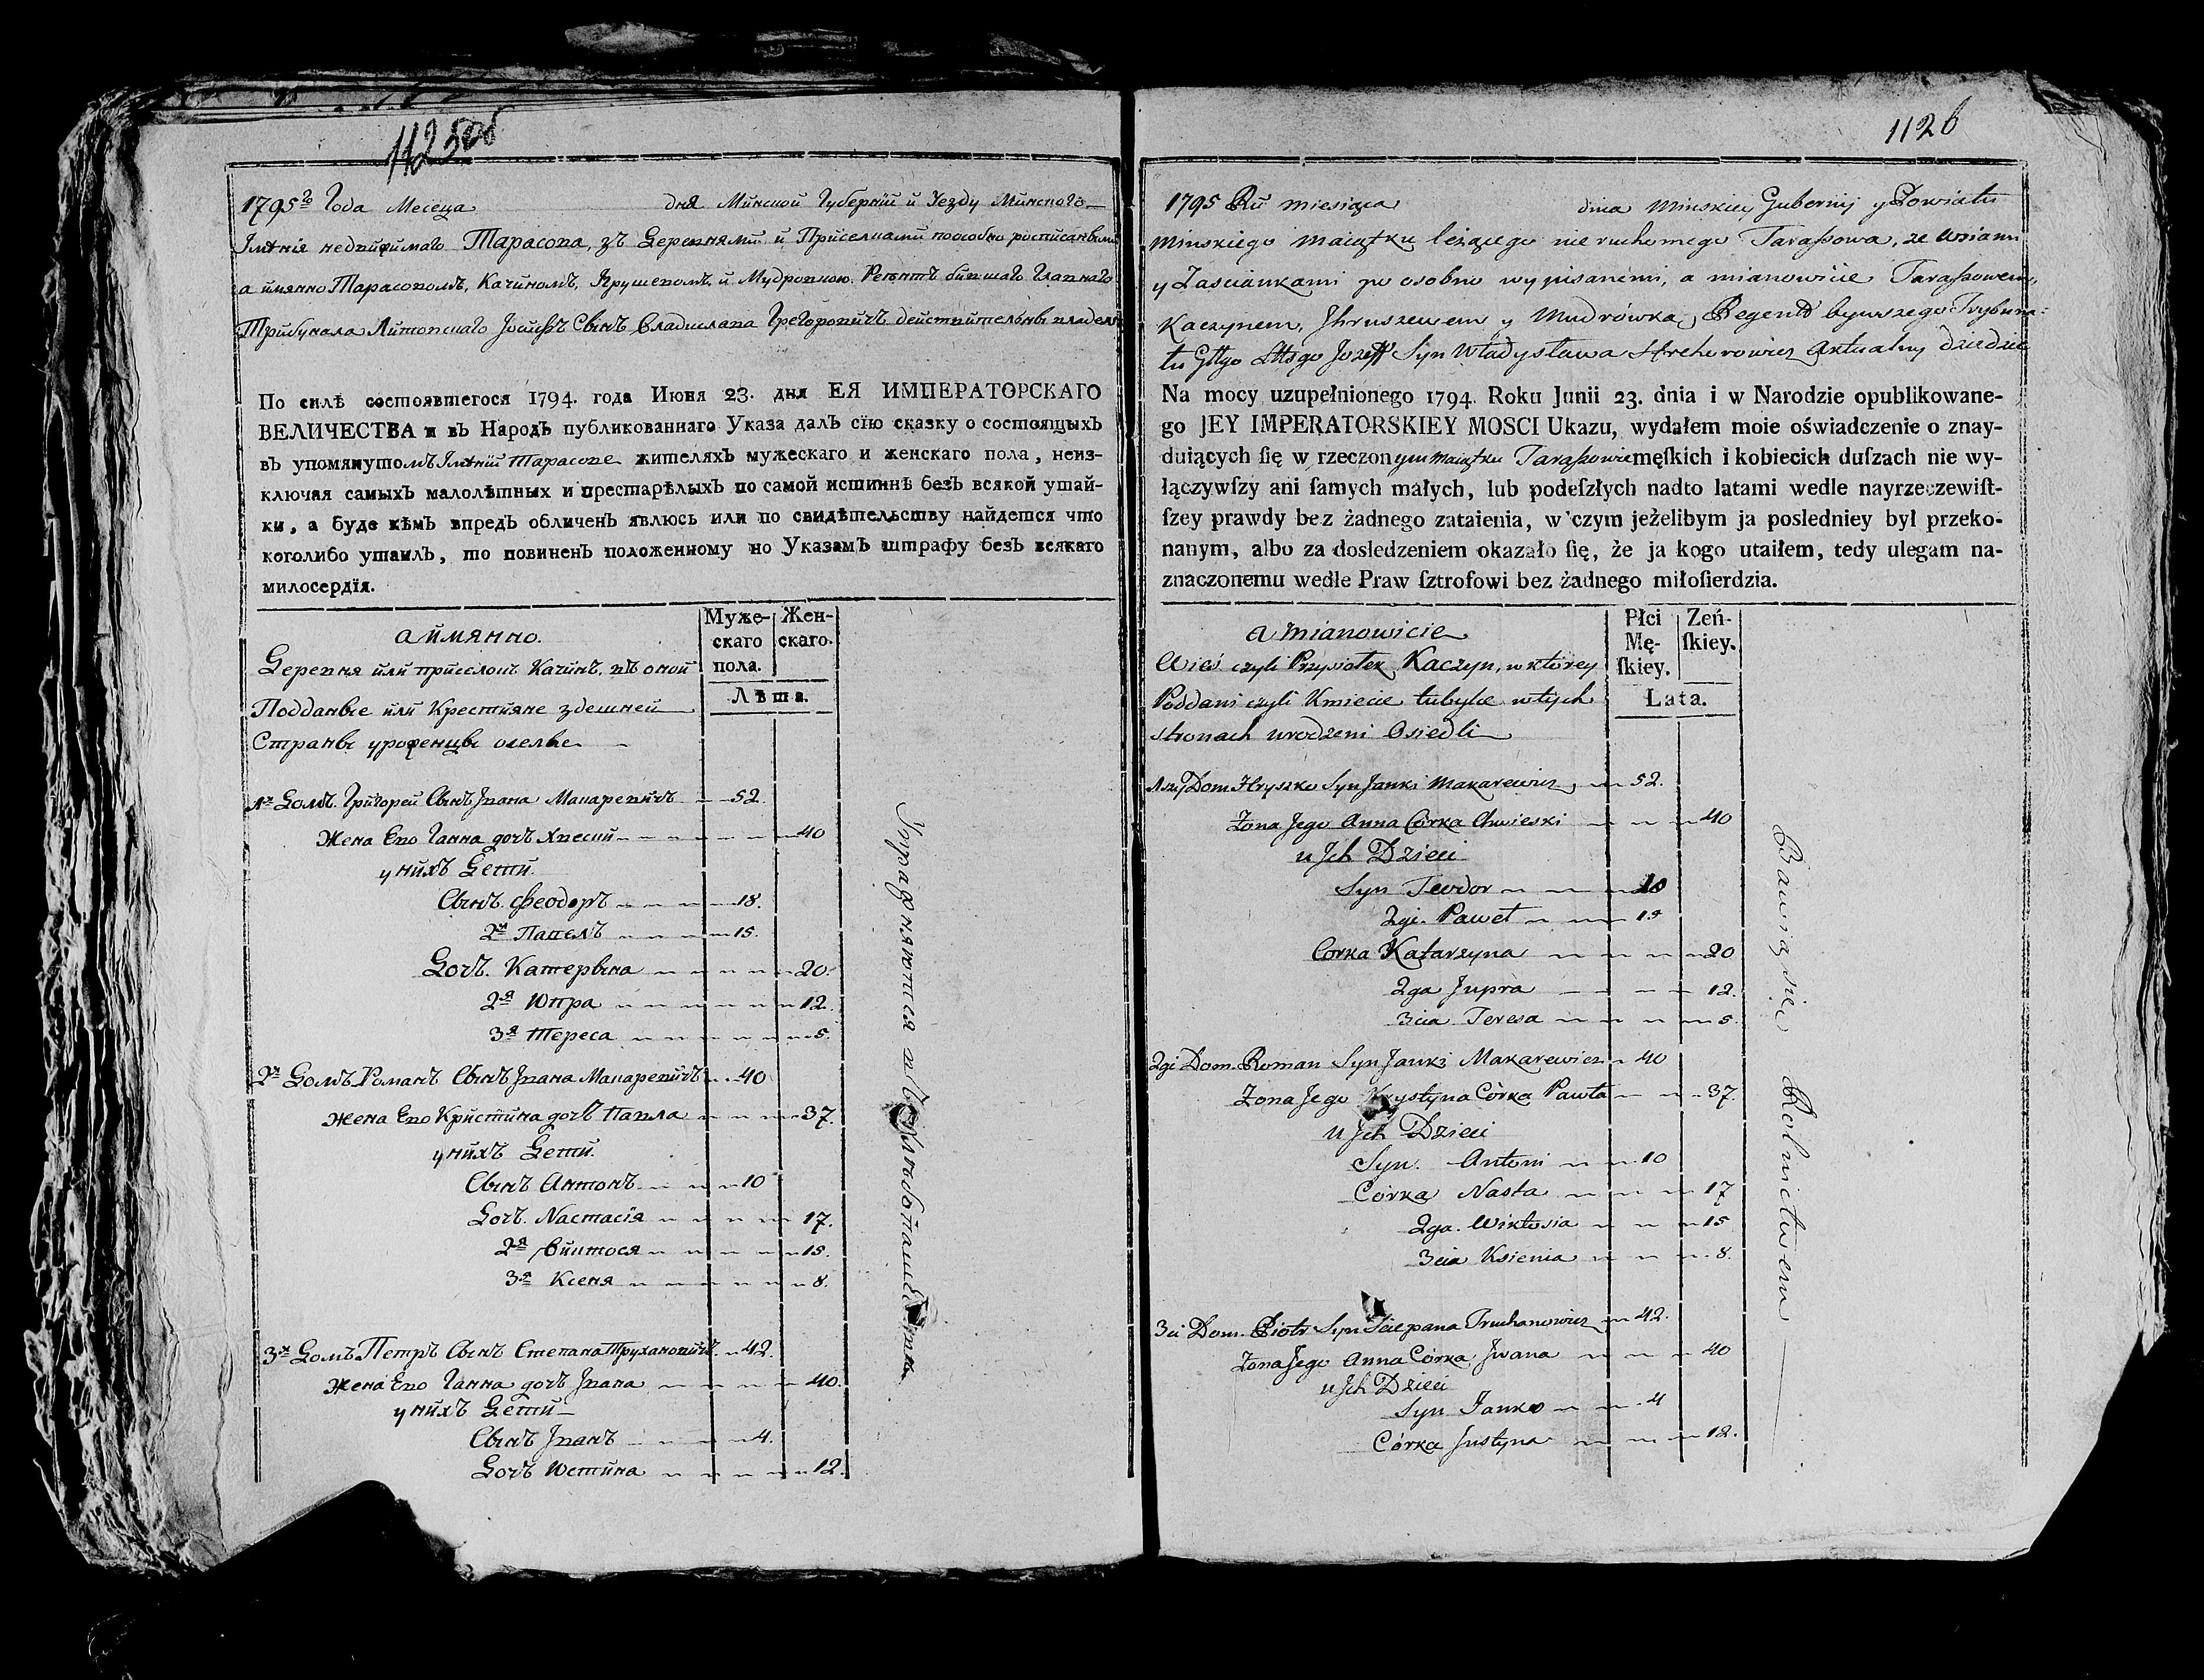 1125об
1795го Года Месеца дня Минской Губернїи и Уезду Минского
Имѣнїя недвижимаго Тарасова, зъ Деревнями и Приселками поособно росписанными
а имянно Тарасовомъ, Качиномъ, Грушевомъ, и Мудровкою. Регентъ бывшаго Главнаго
Трибунала Литовскаго Іосифъ Сынъ Владислава Грегоровичъ действительны владелецъ
По силѣ состоявшегося 1794. года Июня 23. дня ЕЯ ИМПЕРАТОРСКАГО
ВЕЛИЧЕСТВА и въ Народъ публикованнаго Указа далъ сїю сказку о состоящыхъ
въ упомянутомъ Имѣнїи Тарасове жителяхъ мужескаго и женскаго пола, неиз-
ключая самыхъ малолѣтныхъ и престарѣлыхъ по самой истиннѣ безъ всякой утай-
ки, а буде кѣмъ впредъ обличенъ явлюсь или по свидѣтельству найдется что
коголибо утаилъ, то повиненъ положенному по Указамъ штрафу безъ всякаго
милосердїя.
Муже-скаго пола. Жен-скаго.
Лѣта.
а имянно.
Деревня или приселокъ Качинъ, въ оной
Подданые или Крестияне здешней
Страны уроженцы оселые
1й Домъ. Григорей Сынъ Ивана Макаревичъ 52.
Жена Его Ганна дочъ Хвески 40
у нихъ Дети.
Сынъ. Феодоръ 18.
2й Павелъ 15.
Дочъ. Катерына 20.
2я Юпра 12.
3я Тереса 5.
2й Домъ Романъ Сынъ Ивана Макаревичъ 40
Жена Его Кристина дочъ Павла 37.
у нихъ Дети.
Сынъ Антонъ 10
Дочъ. Настасїя 17.
2я Виктося 15.
3я Ксеня 8.
3й Домъ Петръ Сынъ Степана Трухановичъ 42.
Жена Его Ганна дочъ Ивана 40.
у нихъ Дети
Сынъ Иванъ 4.
Дочъ Юстина 12.
Упражняются хлебопашеством
1126
1795 Ru miesiąca dnia Minskiey Gubernij y Powiatu
Minskiego maiątku leżącego nieruchomego Tarassowa, ze Wsiami
y Zasciankami po osobno wypisanemi, a mianowicie Tarassowem,
Kaczynem, Hruszewem y Mudrówką, Regent bywszego Trybuna-
łu Głłgo Litsgo Jozeff Syn Władysława Hrehorowicz Aktualny Dziedzic
Na mocy uzupełnionego 1794. Roku Junii 23. dnia i w Narodzie opublikowane-
go JEY IMPERATORSKIEY MOSCI Ukazu, wydałem moie oświadczenie o znay-
duiących ſię w rzeczonym maiątku Tarassowie męſkich i kobiecich duſzach nie wy-
łączywſzy ani ſamych małych, lub podeſzłych nadto latami wedle nayrzeczewiſt-
ſzey prawdy bez żadnego zataienia, w'czym jeżelibym ja posledniey był przeko-
nanym, albo za dosledzeniem okazało ſię, że ja kogo utaiłem, tedy ulegam na-
znaczonemu wedle Praw ſztrofowi bez żadnego miłoſierdzia.
Płci Mę-ſkiey. Zeń-ſkiey.
Lata.
a mianowicie
Wieś czyli Przysiołek Kaczyn, w ktorey
Poddani czyli Kmiecie tubylce w tych
stronach urodzeni Osiedli
1szy Dom Hryszko Syn Janki Makarewicz 52.
Żona Jego Anna Córka Chwieski 40
u Jch Dzieci
Syn Teodor 18
2gi. Paweł 15
Corka Katarzyna 20
2ga Jupra 12.
3cia Teresa 5.
2gi Dom. Roman Syn Janki Makarewicz 40
Żona Jego Krystyna Córka Pawła 37.
u Jch Dzieci
Syn. Antoni 10
Córka Nasta 17
2ga. Wiktosia 15
3cia Ksienia 8.
3ci Dom. Piotr Syn Sciepana Truchanowicz 42.
Żona Jego Anna Córka Jwana 40
u Jch Dzieci
Syn Janko 4
Córka Justyna 12.
Bawią się Rolnictwem